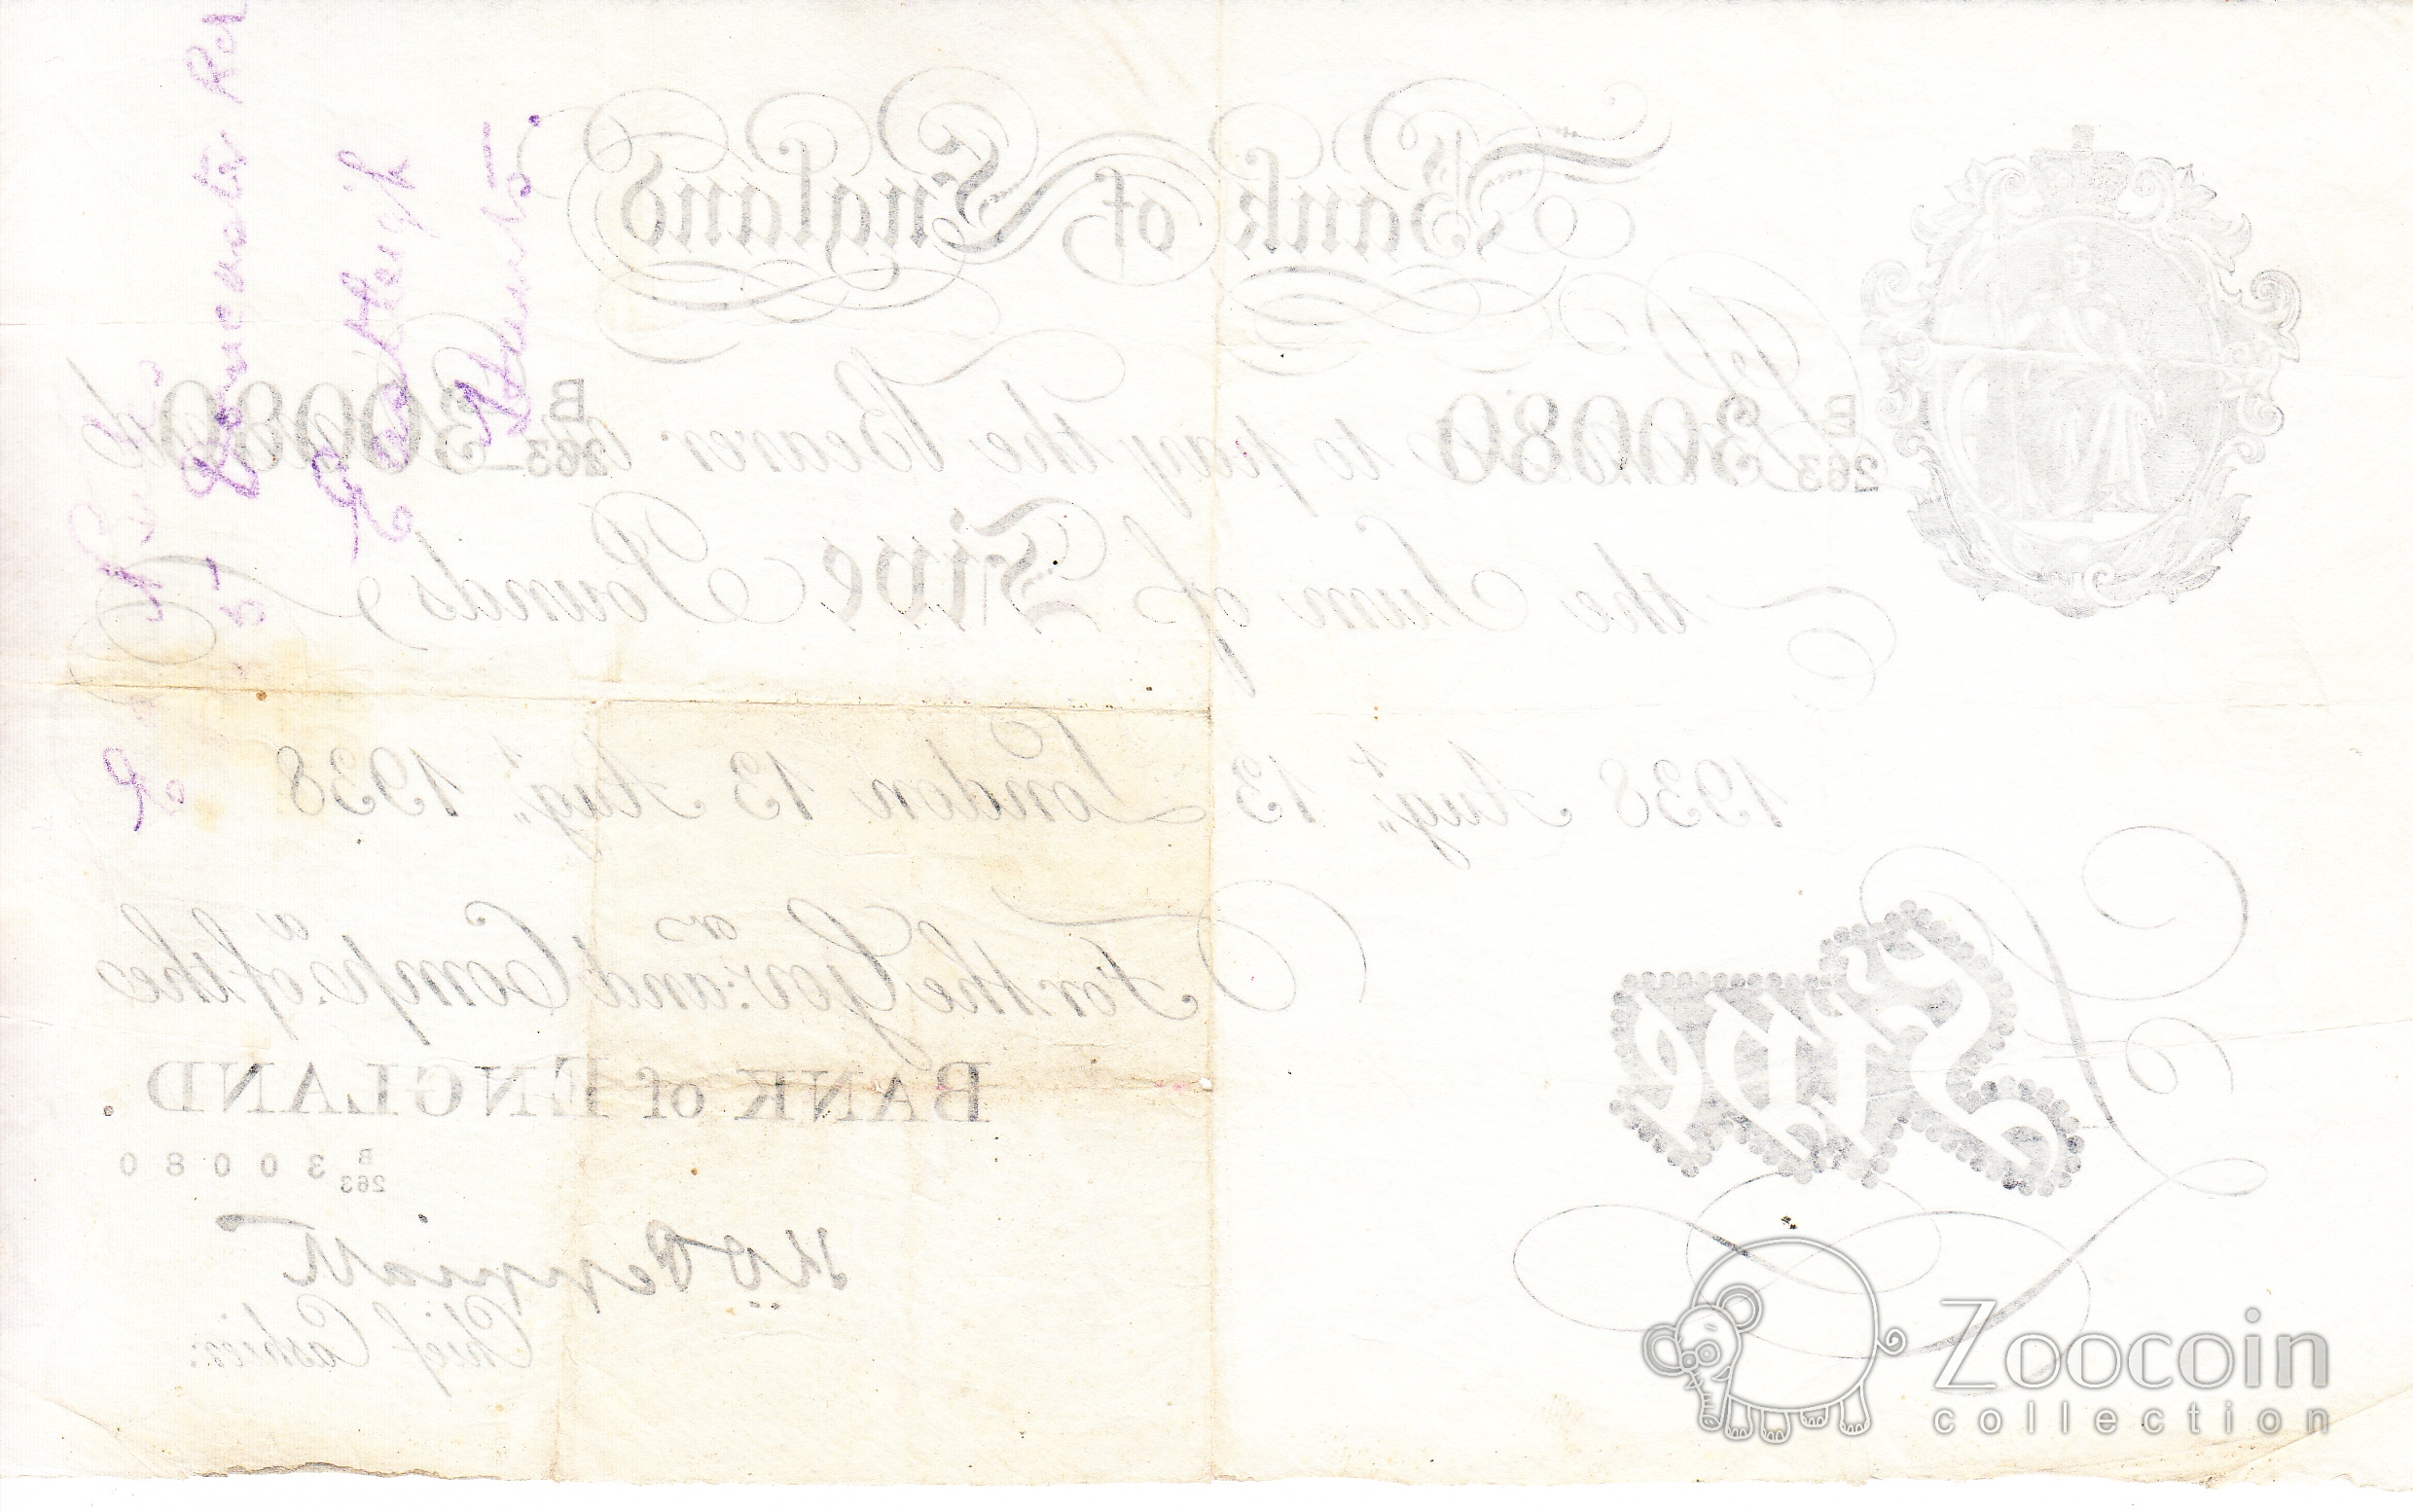 Bank of England
B 263 30080 B 263 30080
to pay the Bearer on
the Sum of Five Pounds
1938 Augst 13 London 13 Augst 1938
For the Govr and Compa of the
BANK of ENGLAND
B 263 30080
Five
Chief Cashier.
Eastleigh
Zoocoin
collection